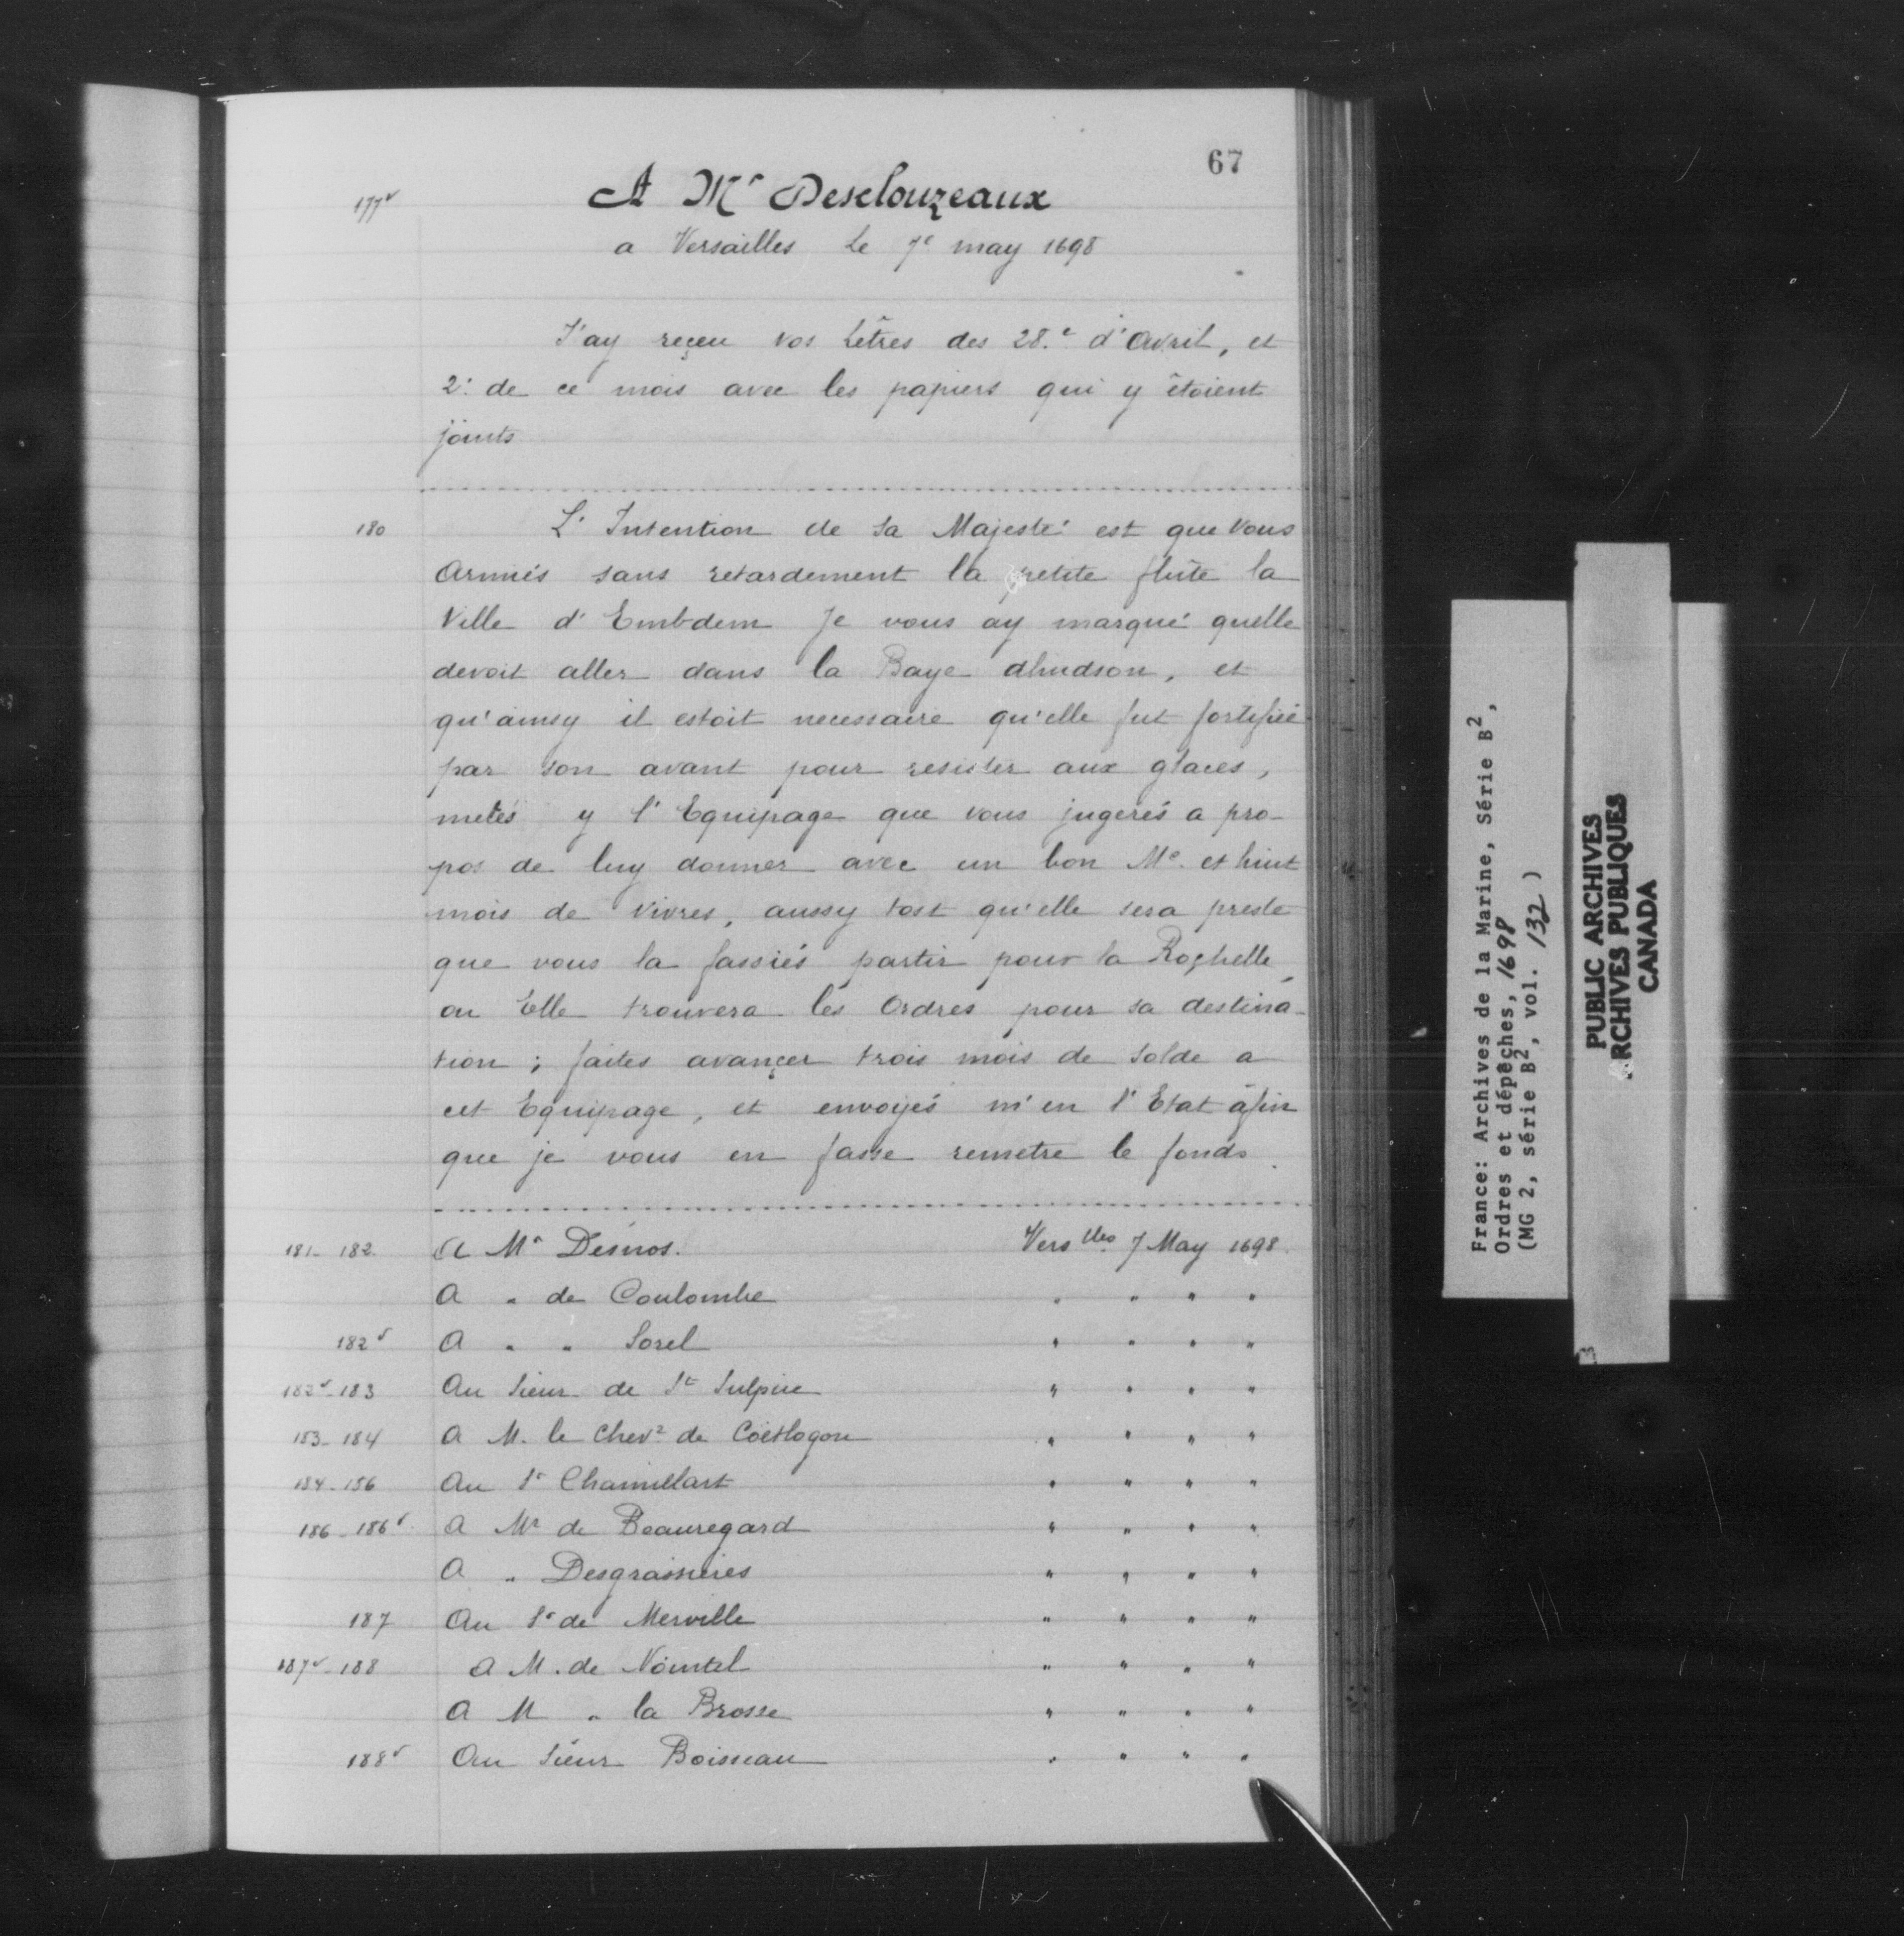 67
177v A Mr Desclouzeaux
a Versailles Le 7e may 1698
J'ay reçeu vos Lêtres des 28.e d'Avril, et
2: de ce mois avec les papiers qui y êtoient
joints
180 L'Intention de sa Majesté est que vous
Armiés sans retardement la petite flute la
Ville d'Embdem Je vous ay marqué quelle
devoit aller dans la Baye dhudson, et
qu'ainsy il estoit necessaire qu'elle fut fortifiée
par son avant pour resister aux glaces,
metés y l'Equipage que vous jugerés a pro-
pos de luy donner avec un bon Me. et huit
mois de vivres, aussy tost qu'elle sera preste
que vous la fassiés partir pour la Rochelle,
ou Elle trouvera les Ordres pour sa destina-
tion; faites avançer trois mois de solde a
cet Equipage, et envoyés m'en l'Etat âfin
que je vous en fasse remetre le fonds.
181-182 A Mr Desnos. Verslles 7 May 1698.
A " de Coulombe " " " "
182v A " " Sorel " " " "
182v-183 Au Sieur de St Sulpice " " " "
183-184 A M. le Chevr de Coëtlogon " " " "
184-186 Au Sr Chamillart " " " "
186-186v A Mr de Beauregard " " " "
A " Desgrassieres " " " "
187 Au Sr de Merville " " " "
187v-188 A M. de Nointel " " " "
A M " la Brosse " " " "
188v Au Sieur Boisseau " " " "
France: Archives de la Marine, Série B2,
Ordres et dépêches, 1698
(MG 2, série B2, vol. 132)
PUBLIC ARCHIVES
ARCHIVES PUBLIQUES
CANADA